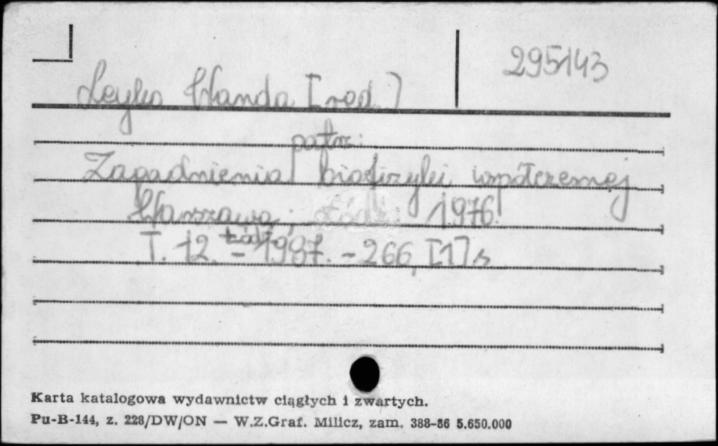 295143
Leyko Wanda [red.]
patrz:
Zagadnienia biofizyki współczesnej
Warszawa; Łódź: 1976.
Łódź
T. 12. - 1987. - 266, [1] s
Karta katalogowa wydawnictw ciągłych i zwartych.
Pu-B-144, z. 228/DW/ON — W.Z.Graf. Milicz, zam. 388-86 5.650.000